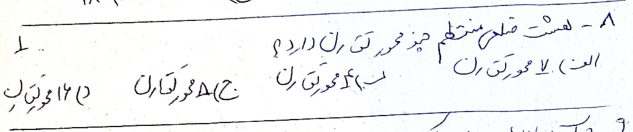 ۸ - هشت ضلعی منتظم چند محور تقارن دارد؟
الف) ۷ محور تقارن ب) ۴ محور تقارن ج) ۸ محور تقارن د) ۱۶ محور تقارن